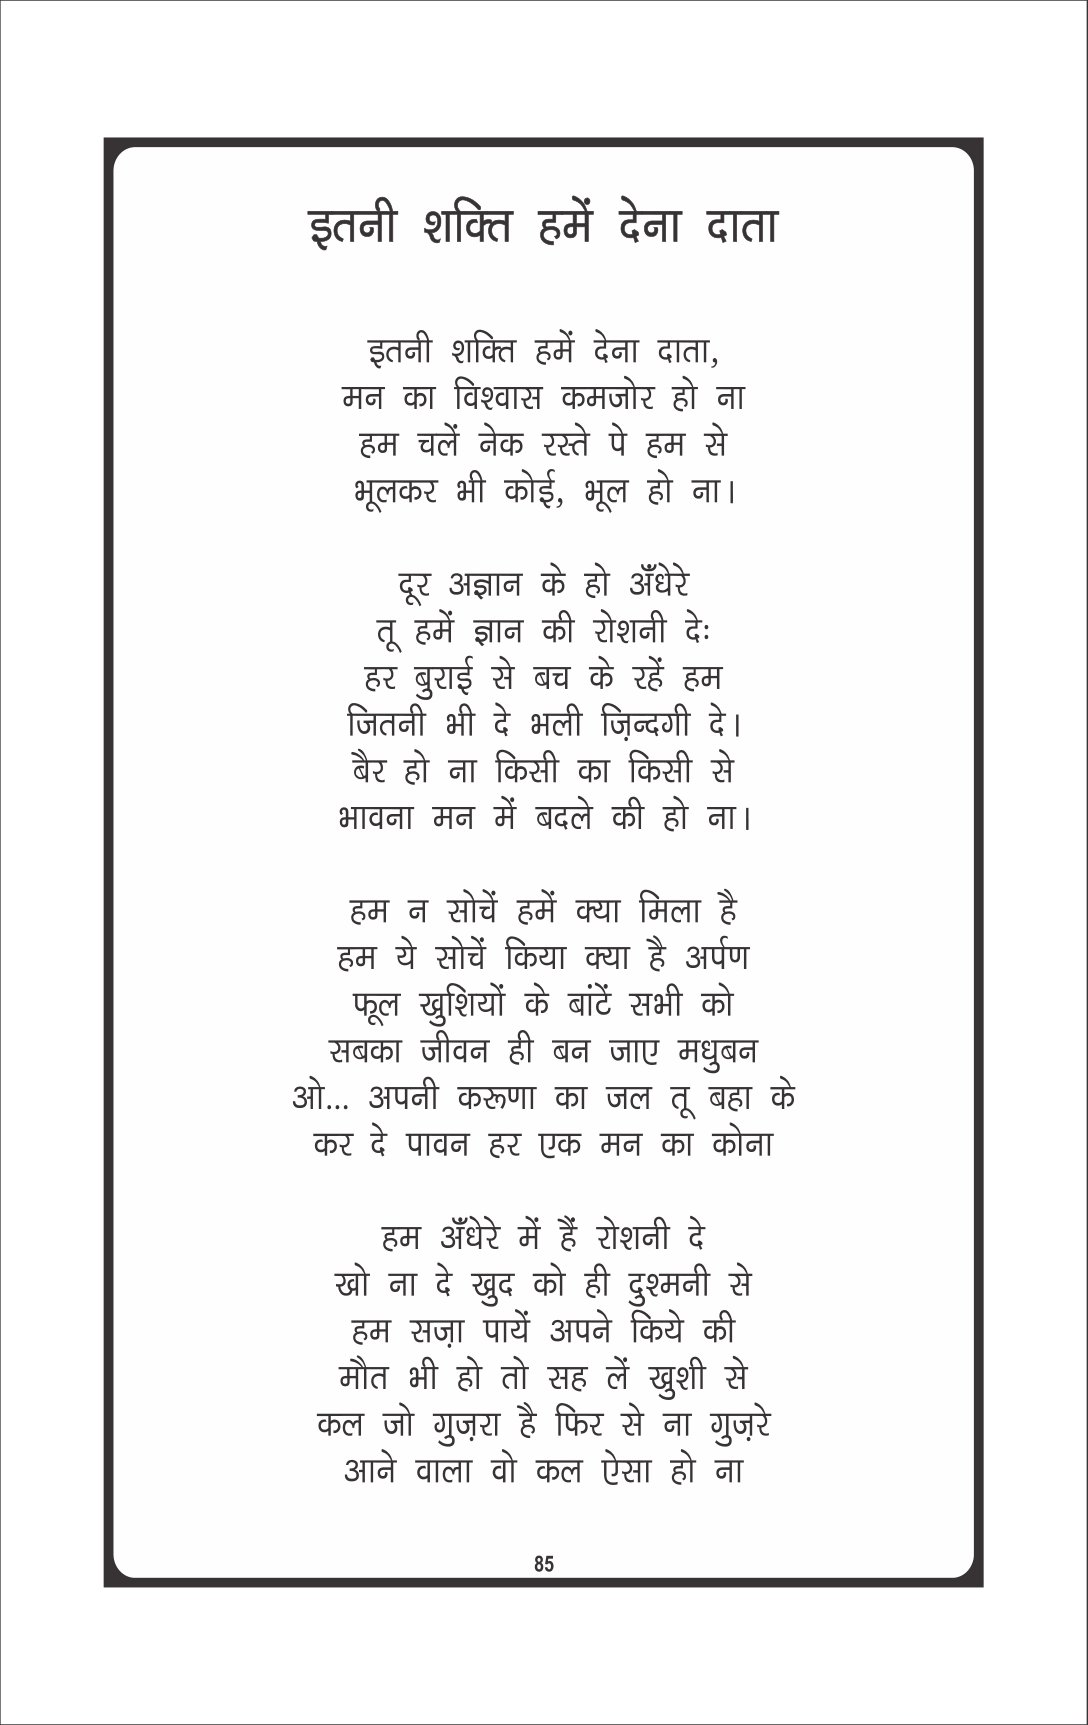 इतनी शक्ति हमें देना दाता
इतनी शक्ति हमें देना दाता,
मन का विश्वास कमजोर हो ना
हम चलें नेक रस्ते पे हम से
भूलकर भी कोई, भूल हो ना।
दूर अज्ञान के हो अँधेरे
तू हमें ज्ञान की रोशनी देः
हर बुराई से बच के रहें हम
जितनी भी दे भली ज़िन्दगी दे।
बैर हो ना किसी का किसी से
भावना मन में बदले की हो ना।
हम न सोचें हमें क्या मिला है
हम ये सोचें किया क्या है अर्पण
फूल खुशियों के बांटें सभी को
सबका जीवन ही बन जाए मधुबन
ओ... अपनी करूणा का जल तू बहा के
कर दे पावन हर एक मन का कोना
हम अँधेरे में हैं रोशनी दे
खो ना दे खुद को ही दुश्मनी से
हम सज़ा पायें अपने किये की
मौत भी हो तो सह लें खुशी से
कल जो गुज़रा है फिर से ना गुज़रे
आने वाला वो कल ऐसा हो ना
85